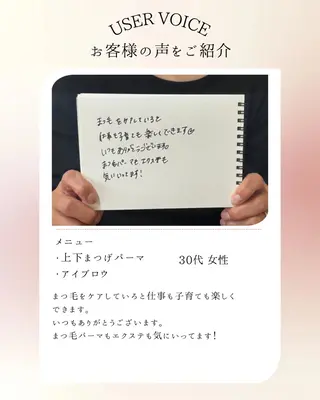 USER VOICE
お客様の声をご紹介
まつ毛をケアしていると
仕事も子育ても楽しくできます
いつもありがとうございます。
まつ毛パーマもエクステも
気にいってます!
メニュー
・上下まつげパーマ
・アイブロウ
30代 女性
まつ毛をケアしていると仕事も子育ても楽しく
できます。
いつもありがとうございます。
まつ毛パーマもエクステも気にいってます!